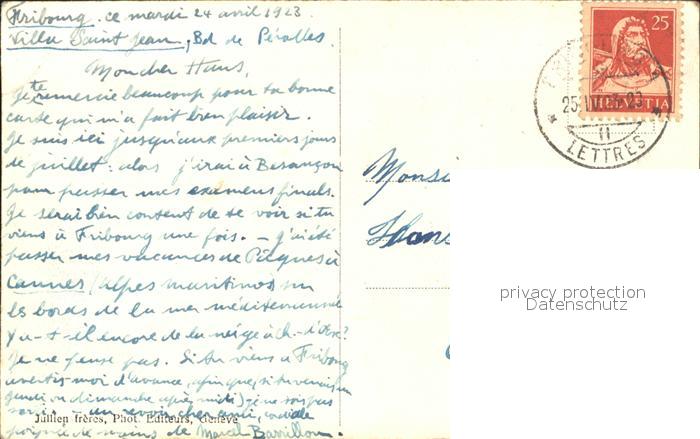 Fribourg. ce mardi 24 avril 1923
Villa Saint Jean, Bd de Pérolles.
Mon cher Hans,
Je te remercie beaucoup pour ta bonne
carte qui m'a fait bien plaisir.
Je suis ici jusqu'aux premiers jours
de juillet: alors j'irai à Besançon
pour passer mes examens finals.
Je serai bien content de te voir si tu
viens à Fribourg une fois. – J'ai été
passer mes vacances de Pâques à
Cannes (Alpes maritimes) sur
les bords de la mer méditerranée
Y a-t-il encore de la neige à
Je ne pense pas. Si tu viens à Fribourg
avertis-moi d'avance, afin que, si tu venais un
jeudi ou dimanche après-midi, je ne sois pas
sorti. – au revoir cher ami, cordiale
Jullien frères, Phot. Editeurs, Genève
poignée de mains de Marcel
25
HELVETIA
25.IV.23
11
LETTRES
Hans
privacy protection
Datenschutz